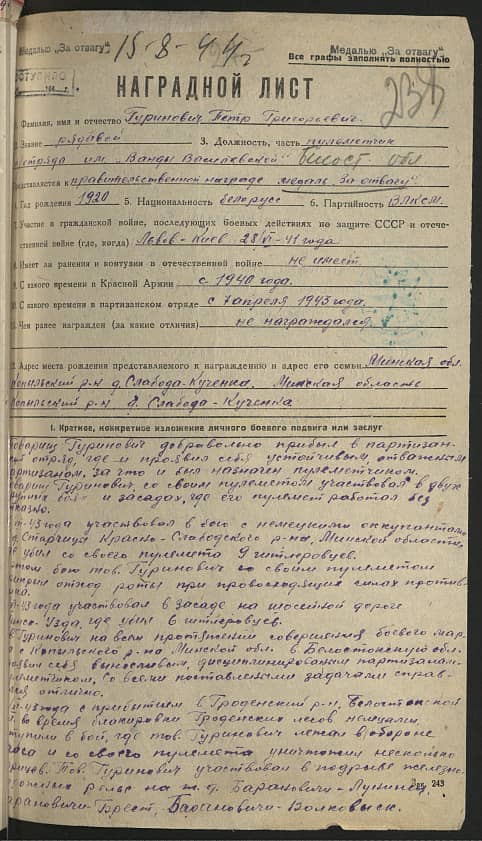 Медалью „За отвагу"
15-8-44
Медалью „За отвагу"
Все графы заполнять полностью
НАГРАДНОЙ ЛИСТ
Фамилия, имя и отчество Гуринович Петр Григорьевич
Звание рядовой 3. Должность, часть пулеметчик
отряда им. „Ванды Василевской" Белост. обл.
представляется к правительственной награде медаль „За отвагу"
Год рождения 1920 5. Национальность белорусс 6. Партийность ВЛКСМ.
Участие в гражданской войне, последующих боевых действиях по защите СССР и отече-
ственной войне (где, когда) Львов-Киев 41 года
Имеет ли ранения и контузии в отечественной войне не имеет
С какого времени в Красной Армии с 1940 года.
С какого времени в партизанском отряде с 7 апреля 1943 года.
Чем ранее награжден (за какие отличия) не награждался
Адрес места рождения представляемого к награждению и адрес его семьи Минская обл.
Копыльский р-н д. Слабода-Кученка. Минская область
Копыльский р-н д. Слабода-Кученка
I. Краткое, конкретное изложение личного боевого подвига или заслуг
Товарищ Гуринович добровольно прибыл в партизан-
ский отряд, где и проявил себя устойчивым, отважным
партизаном, за что и был назначен пулеметчиком.
Товарищ Гуринович со своим пулеметом участвовал в двух
боях и засадах, где его пулемет работал без
отказно.
43 года участвовал в бою с немецкими оккупантами
д. Старица Красно-Слабодского р-на, Минской области,
где убил со своего пулемета 9 гитлеровцев.
этом бою тов. Гуринович со своим пулеметом
отход роты при превосходящих силах против-
ника.
43 года участвовал в засаде на шосейной дороге
Узда, где убил 8 гитлеровцев.
Гуринович на всем протяжении совершения боевого мар-
ша с Копыльского р-на Минской обл. в Белостокскую обл.
проявил себя выносливым, дисциплинированым партизаном-
пулеметчиком, со всеми поставлеными задачами справ-
лялся отлично.
43 года с прибытием в Гроденский р-н, Белостокской
во время блокировки Гроденских лесов немцами
вступили в бой, где тов. Гуринович лежал в обороне
часа и со своего пулемета уничтожил несколько
Тов. Гуринович участвовал в подрыве железно-
дорожных рельс на ж.д. Баранович-Лунинец,
Барановичи-Брест, Барановичи-Волковыск.
243